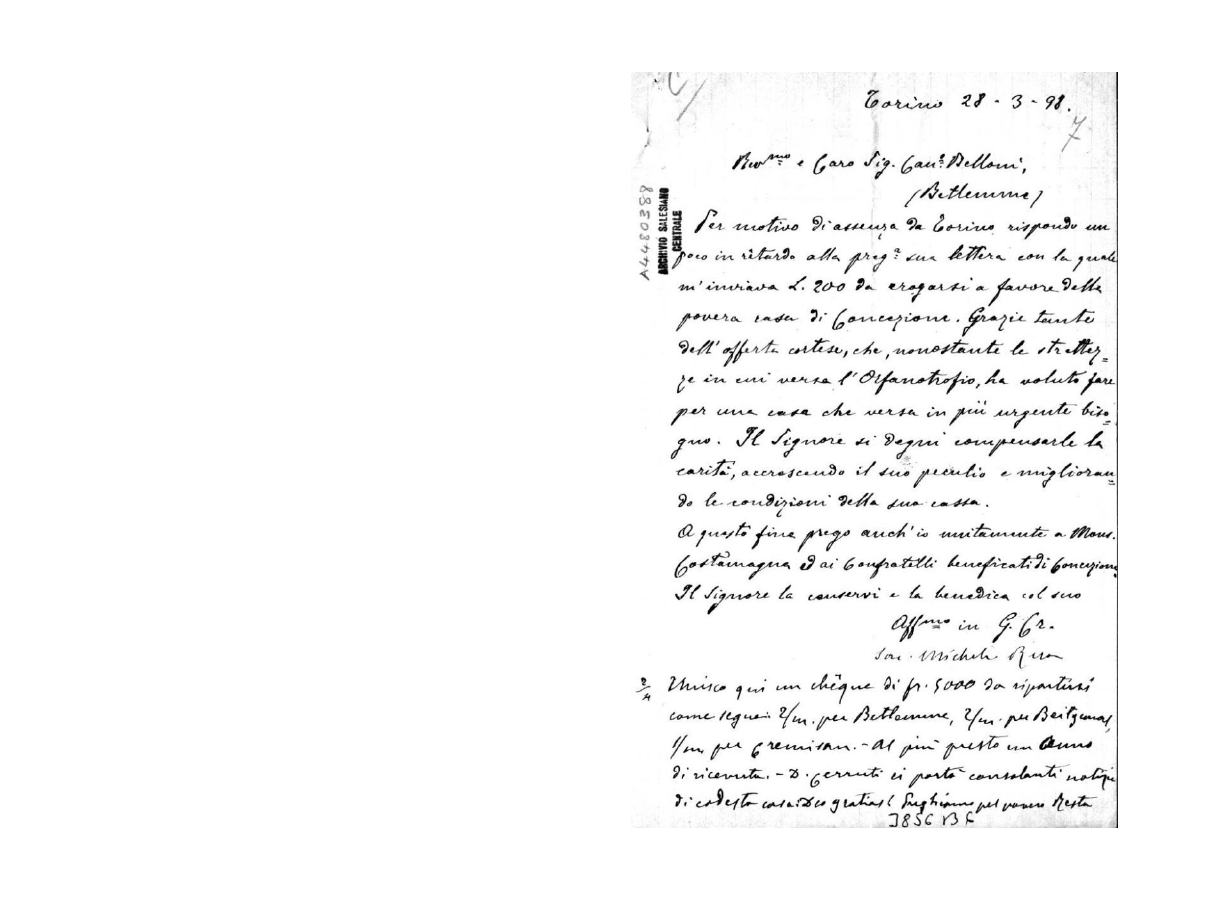 Torino 28 - 3 - 98.
7
Rev.mo e Caro Sig. Can.o Belloni,
(Betlemme)
A4480388
ARCHIVIO SALESIANO
CENTRALE
Per motivo di assenza da Torino rispondo un
poco in ritardo alla preg.a sua lettera con la quale
m'inviava L. 200 da erogarsi a favore della
povera casa di Concezione. Grazie tante
dell'offerta cortese, che, nonostante le strettez=
ze in cui versa l'Orfanotrofio, ha voluto fare
per una casa che versa in più urgente biso=
gno. Il Signore si degni compensarle la
carità, accrescendo il suo peculio e ( miglioran=
do le condizioni della sua cassa.
A questo fine prego anch'io unitamente a Mons.
Costamagna ed ai Confratelli beneficati di Concezione
Il Signore la conservi e la benedica col suo
Aff.mo in G. Cr.
Sac. Michele Rua
Unisco qui un chêque di fr. 5000 da ripartirsi
come segue: 2/m. per Betlemme, 2/m. per Beitgemal,
1/m per Cremisan. - Al più presto un cenno
di ricevuta. - D. Cerruti ci portò consolanti notizie
di codesta casa: Deo gratias! Preghiamo pel povero Resta
3856 B 6